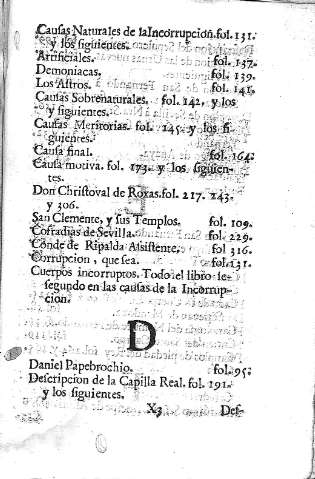 Causas Naturales de la Incorrupcion. fol. 131.
y los siguientes.
Artificiales. fol. 137.
Demoniacas. fol. 139.
Los Astros. fol. 141.
Causas Sobrenaturales. fol. 142, y los
y siguientes.
Causas Meritorias. fol. 145. y los si-
guientes.
Causa final. fol. 164.
Causa motiva. fol. 173. y los siguien-
tes.
Don Christoval de Roxas. fol. 217. 243.
y 306.
San Clemente, y sus Templos. fol. 109.
Cofradias de Sevilla. fol. 229.
Conde de Ripalda Assistente. fol 316.
Corrupcion, que sea. fol. 131.
Cuerpos incorruptos. Todo el libro se-
segundo en las causas de la Incorrup-
cion.
D
Daniel Papebrochio. fol. 95.
Descripcion de la Capilla Real. fol. 191.
y los siguientes.
X3 Def-